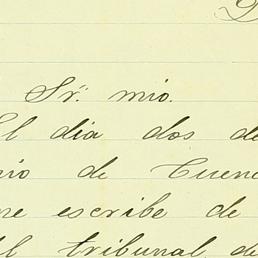 Sr. mio.
El dia dos de
de Cuen
escribe de
tribunal de